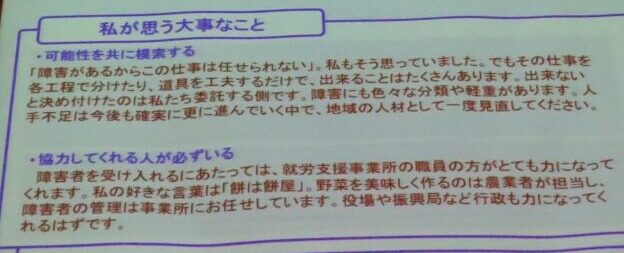 私が思う大事なこと
・可能性を共に模索する
「障害があるからこの仕事は任せられない」。私もそう思っていました。でもその仕事を
各工程で分けたり、道具を工夫するだけで、出来ることはたくさんあります。出来ない
と決め付けたのは私たち委託する側です。障害にも色々な分類や軽重があります。人
手不足は今後も確実に更に進んでいく中で、地域の人材として一度見直してください。
・協力してくれる人が必ずいる
障害者を受け入れるにあたっては、就労支援事業所の職員の方がとても力になって
くれます。私の好きな言葉は「餅は餅屋」。野菜を美味しく作るのは農業者が担当し、
障害者の管理は事業所にお任せしています。役場や振興局など行政も力になってく
れるはずです。